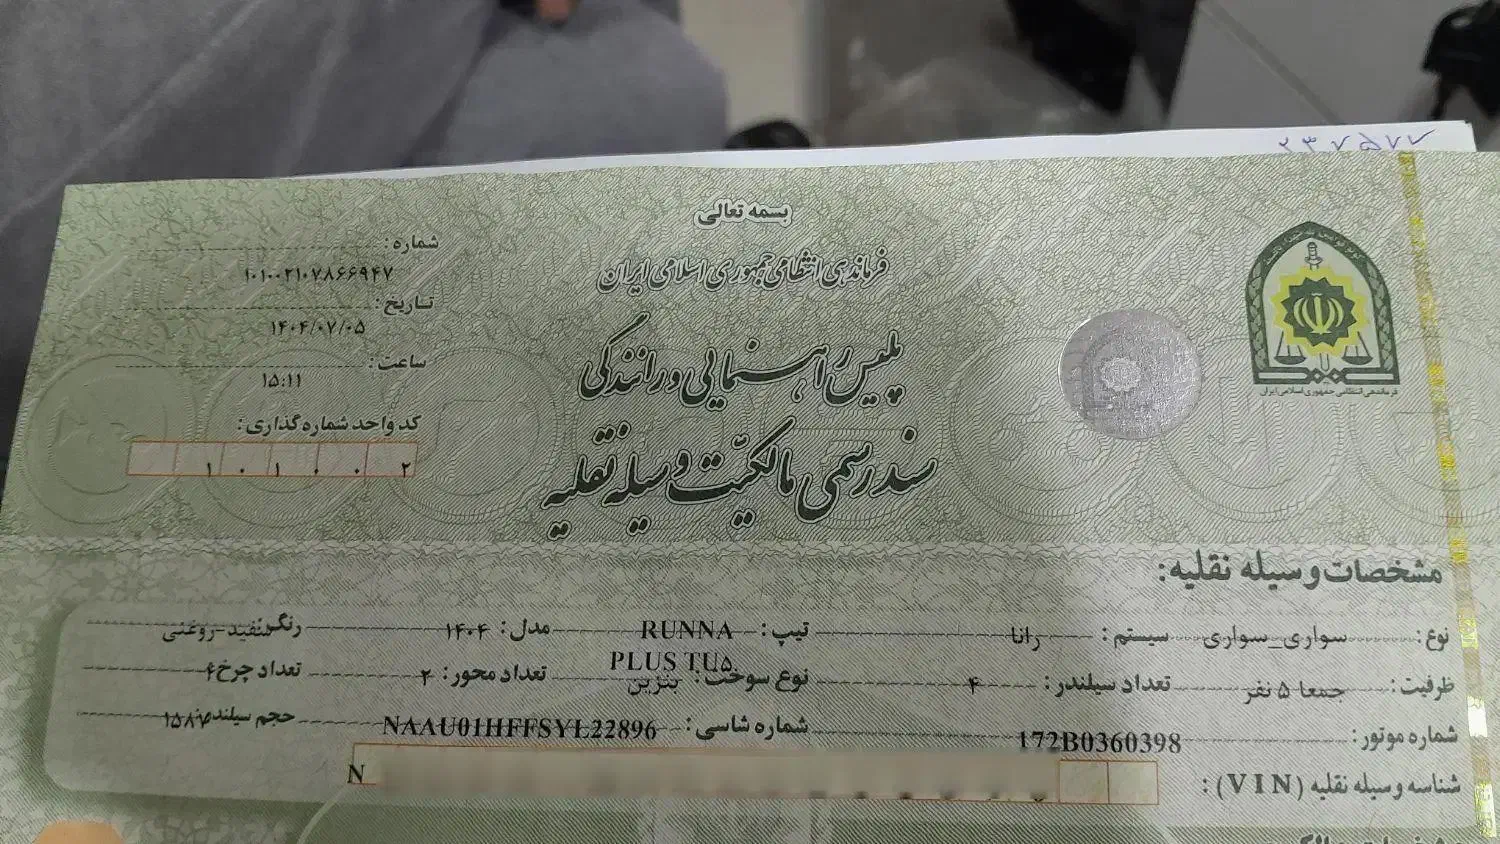 ۲۳۷۵۷۷
بسمه تعالی
فرماندهی انتظامی جمهوری اسلامی ایران
پلیس راهنمایی و رانندگی
سند رسمی مالکیت وسیله نقلیه
شماره:
۱۰۱۰۰۲۱۰۷۸۶۶۹۴۷
تاریخ:
۱۴۰۴/۰۷/۰۵
ساعت:
۱۵:۱۱
کد واحد شماره گذاری:
۱ ۰ ۱ ۰ ۰ ۲
فرماندهی انتظامی جمهوری اسلامی ایران
مشخصات وسیله نقلیه:
نوع: سواری_سواری سیستم: رانا تیپ: RUNNA PLUS TU۵ مدل: ۱۴۰۴ رنگ: سفید-روغنی
ظرفیت: جمعا ۵ نفر تعداد سیلندر: ۴ نوع سوخت: بنزین تعداد محور: ۲ تعداد چرخ: ۴
شماره موتور: 172B0360398 شماره شاسی: NAAU01HFFSYL22896 حجم سیلندر: ۱۵۸۷
شناسه وسیله نقلیه (VIN): N